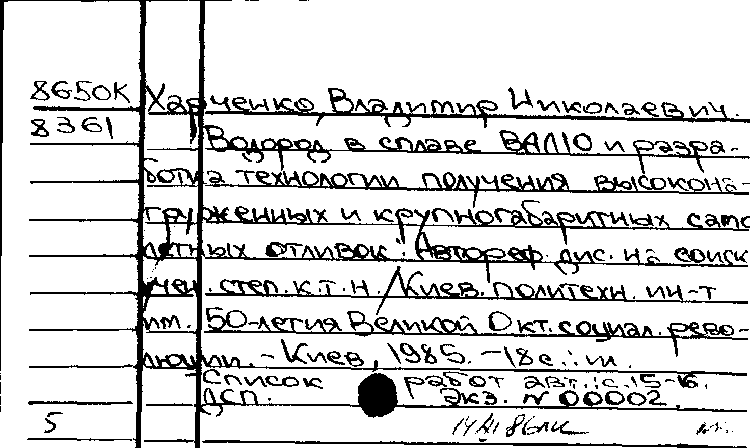 8650К Харченко, Владимир Николаевич.
8361 Водород в сплаве ВАЛ10 и разра-
ботка технологии получения высокона-
груженных и крупногабаритных само
летных отливок: Автореф. дис. на соиск
учен. степ. к.т.н. / Киев. политехн. ин-т
им. 50-летия Великой Окт. социал. рево-
люции. - Киев, 1985. - 18 с.: ил.
Список работ авт.: с. 15-16.
ДСП. Экз. № 00002.
5